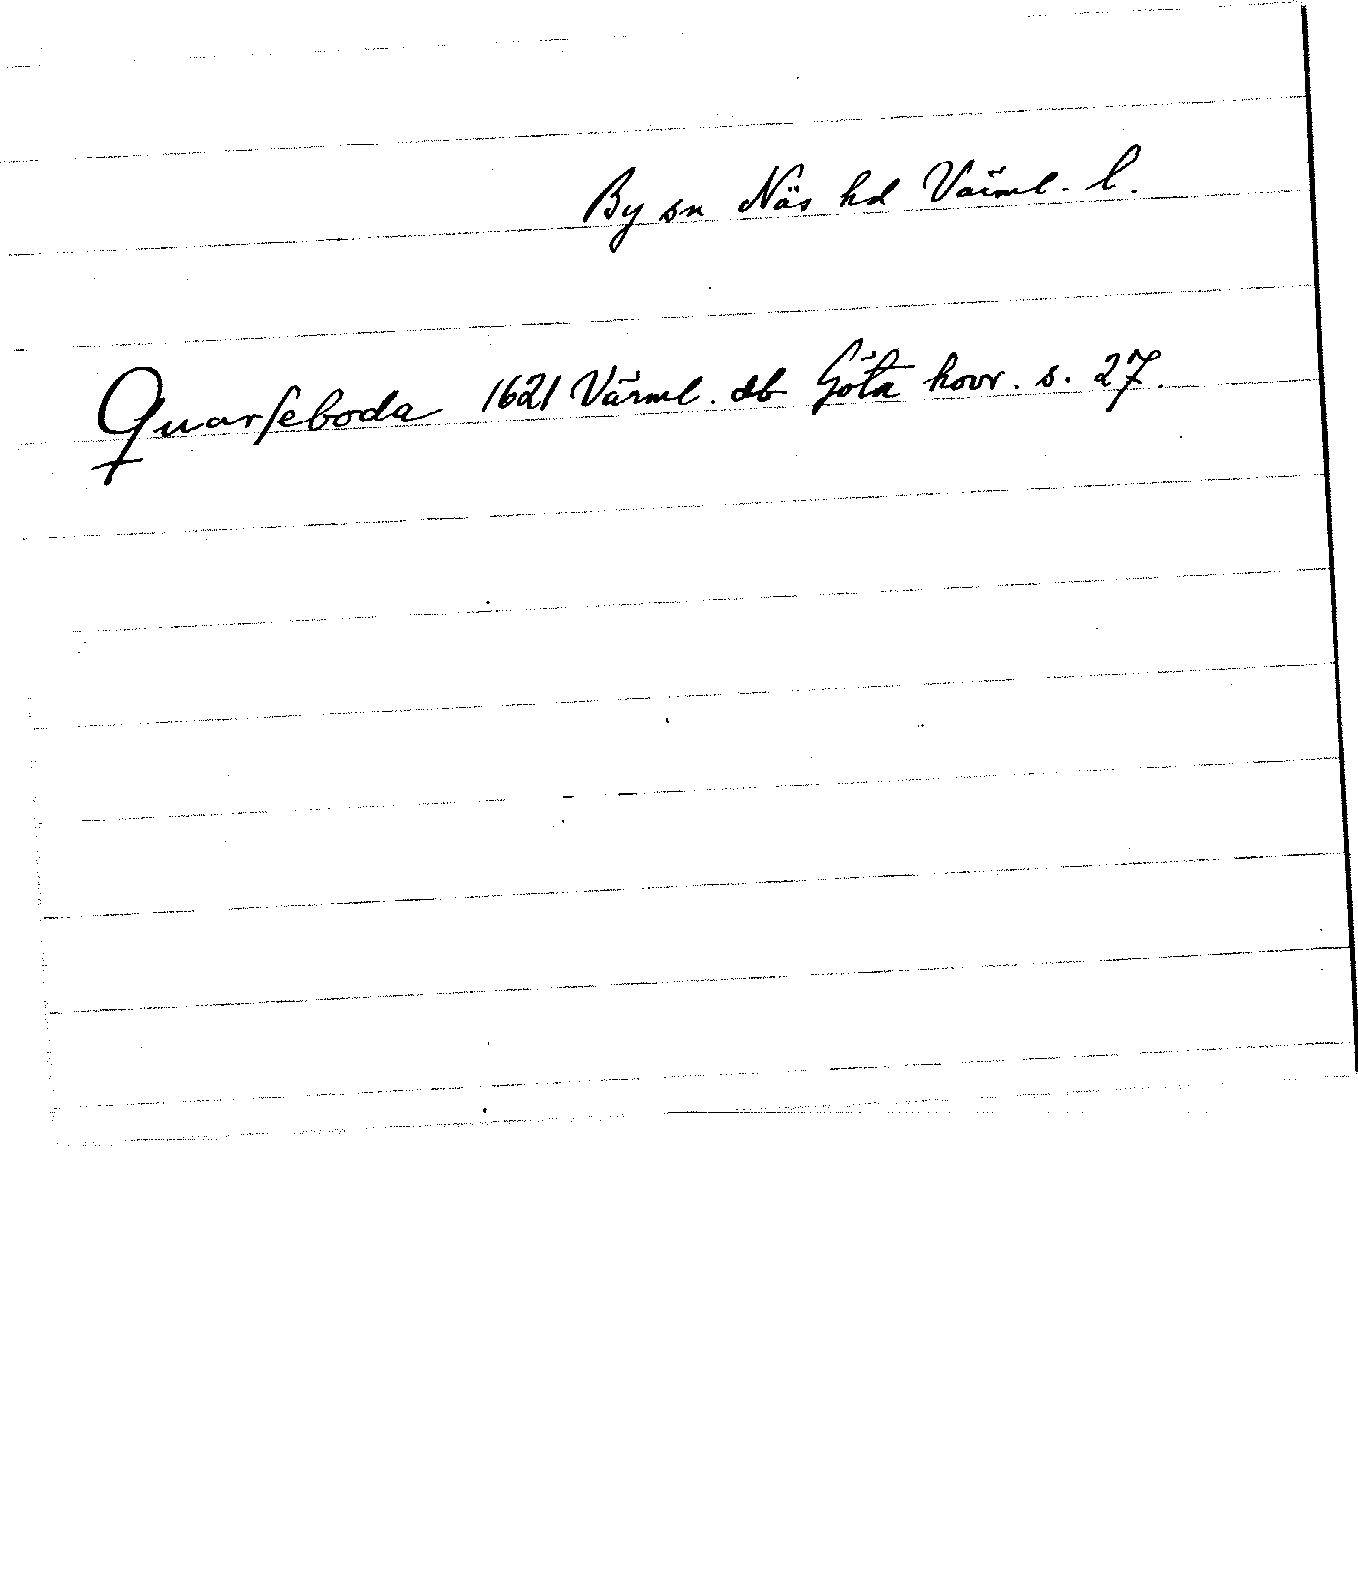 By sn Näs hd Värml. l.
Quarſeboda 1621 Värml. db Göta hovr. s. 27.